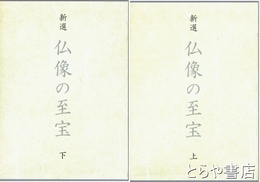 新選
仏像の至宝
下
新選
仏像の至宝
上
とらや書店